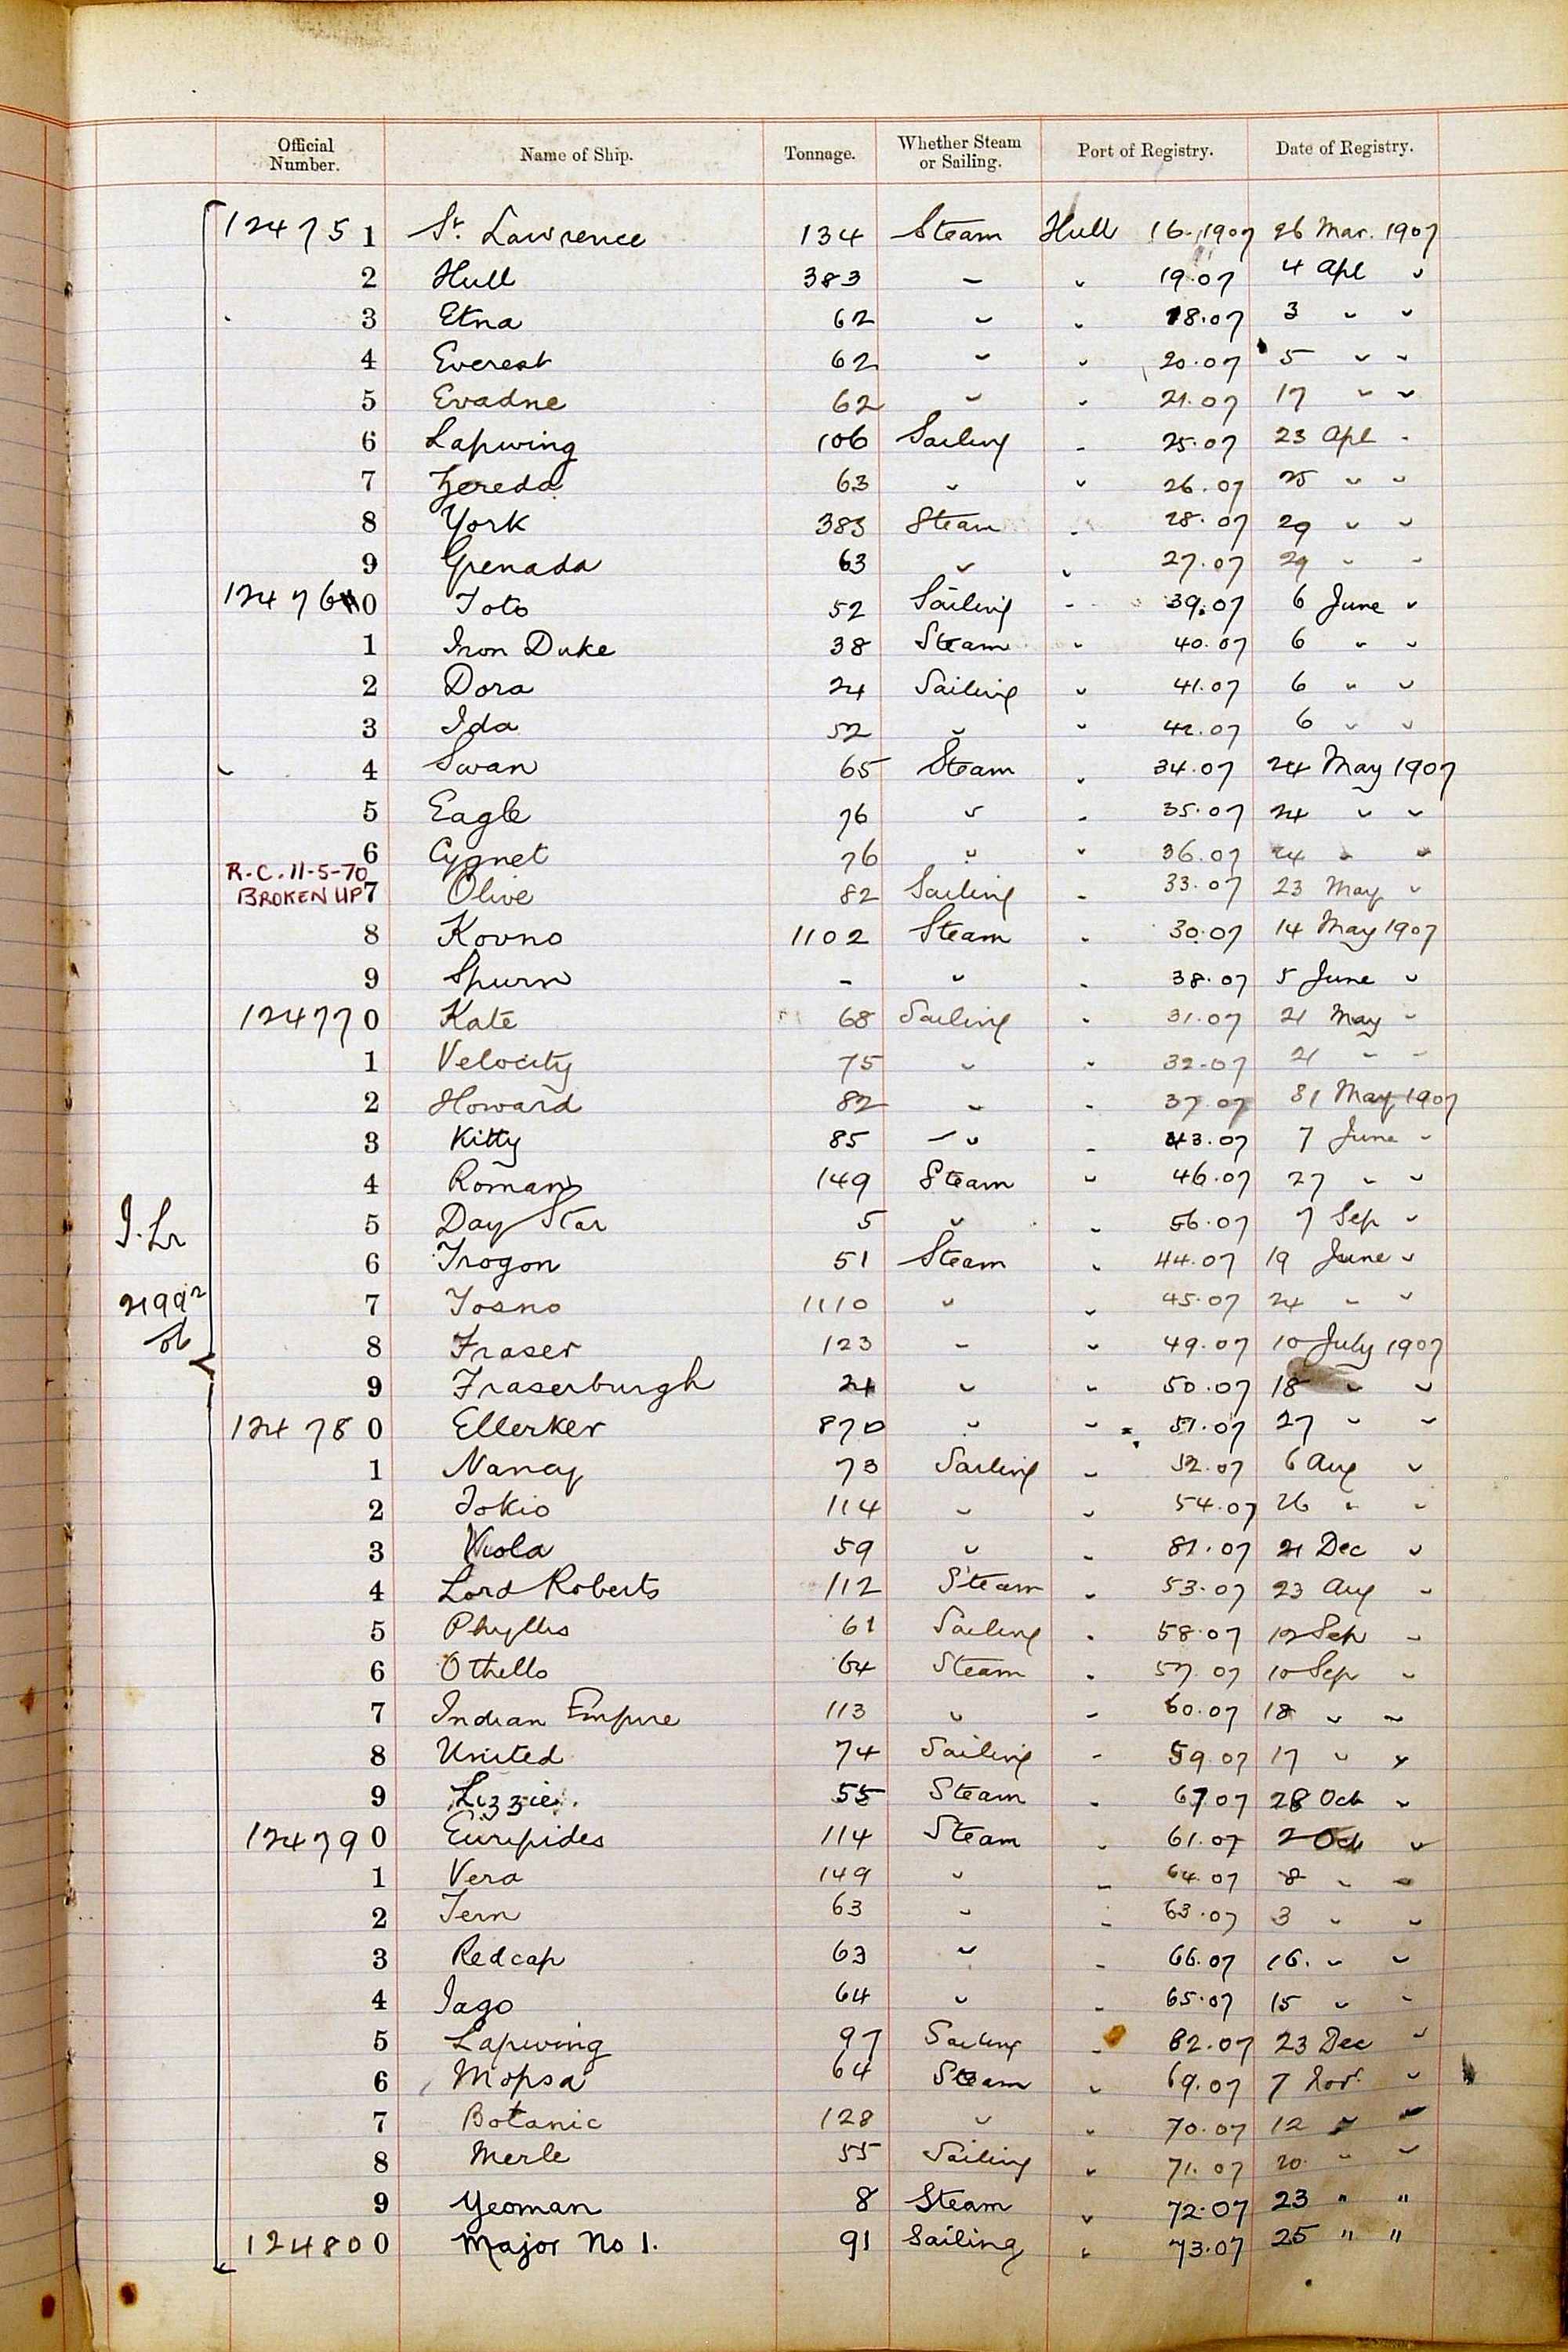 Official Number. Name of Ship. Tonnage. Whether Steam or Sailing. Port of Registry. Date of Registry.
124751 St. Lawrence 134 Steam Hull 16.1907 26 Mar. 1907
2 Hull 383 " " 19.07 4 Apl "
3 Etna 62 " " 18.07 3 " "
4 Everest 62 " " 20.07 5 " "
5 Evadne 62 " " 21.07 17 " "
6 Lapwing 106 Sailing " 25.07 23 Apl "
7 Zereda 63 " " 26.07 25 " "
8 York 383 Steam " 28.07 29 " "
9 Grenada 63 " " 27.07 29 " "
124760 Toto 52 Sailing " 39.07 6 June "
1 Iron Duke 38 Steam " 40.07 6 " "
2 Dora 24 Sailing " 41.07 6 " "
3 Ida 52 " " 42.07 6 " "
4 Swan 65 Steam " 34.07 24 May 1907
5 Eagle 76 " " 35.07 24 " "
6 Cygnet 76 " " 36.07 24 " "
R.C. 11-5-70
BROKEN UP 7 Olive 82 Sailing " 33.07 23 May "
8 Kovno 1102 Steam " 30.07 14 May 1907
9 Spurn - " " 38.07 5 June "
124770 Kate 68 Sailing " 31.07 21 May "
1 Velocity 75 " " 32.07 21 " "
2 Howard 82 " " 37.07 31 May 1907
3 Kitty 85 " " 43.07 7 June "
4 Roman 149 Steam " 46.07 27 " "
5 Day Star 5 " " 56.07 7 Sep "
6 Trogon 51 Steam " 44.07 19 June "
7 Tosno 1110 " " 45.07 24 " "
8 Fraser 123 " " 49.07 10 July 1907
9 Fraserburgh 24 " " 50.07 18 " "
124780 Ellerker 870 " " 51.07 27 " "
1 Nancy 73 Sailing " 52.07 6 Aug "
2 Tokio 114 " " 54.07 26 " "
3 Viola 59 " " 81.07 21 Dec "
4 Lord Roberts 112 Steam " 53.07 23 Aug "
5 Phyllis 61 Sailing " 58.07 12 Sep "
6 Othello 64 Steam " 57.07 10 Sep "
7 Indian Empire 113 " " 60.07 18 " "
8 United 74 Sailing " 59.07 17 " "
9 Lizzie 55 Steam " 67.07 28 Oct "
124790 Euripides 114 Steam " 61.07 2 Oct "
1 Vera 149 " " 64.07 8 " "
2 Tern 63 " " 63.07 3 " "
3 Redcap 63 " " 66.07 16. " "
4 Iago 64 " " 65.07 15 " "
5 Lapwing 97 Sailing " 82.07 23 Dec "
6 Mopsa 64 Steam " 69.07 7 Nov. "
7 Botanic 128 " " 70.07 12 " "
8 Merle 55 Sailing " 71.07 20 " "
9 Yeoman 8 Steam " 72.07 23 " "
124800 Major No 1. 91 Sailing " 73.07 25 " "